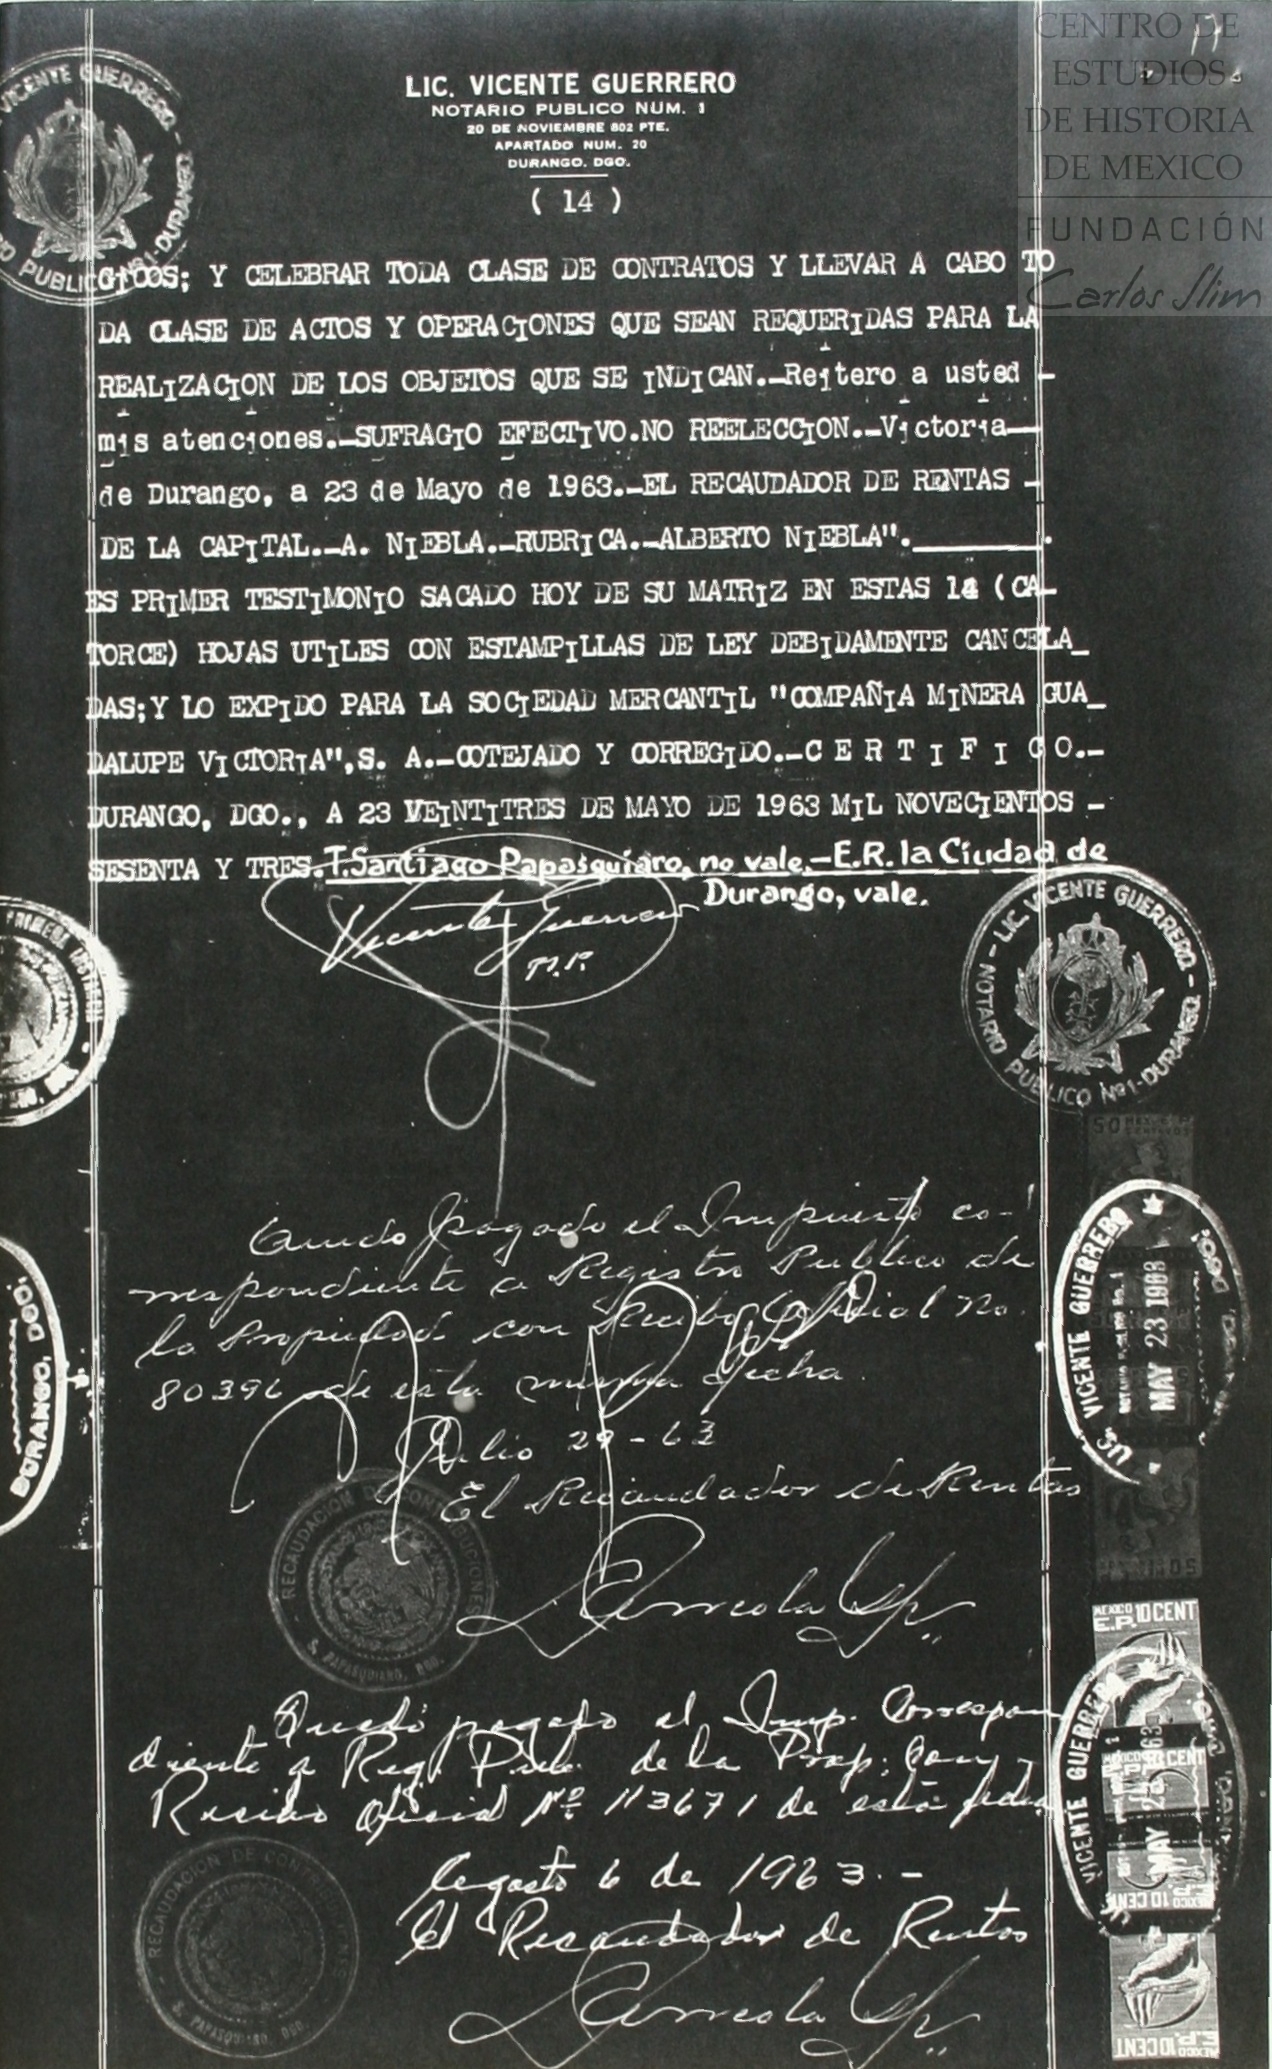 17
CENTRO DE
ESTUDIOS
DE HISTORIA
DE MEXICO
FUNDACIÓN
Carlos Slim
LIC. VICENTE GUERRERO
NOTARIO PUBLICO NUM. 1
20 DE NOVIEMBRE 802 PTE.
APARTADO NUM. 20
DURANGO, DGO.
( 14 )
GICOS; Y CELEBRAR TODA CLASE DE CONTRATOS Y LLEVAR A CABO TO
DA CLASE DE ACTOS Y OPERACIONES QUE SEAN REQUERIDAS PARA LA
REALIZACION DE LOS OBJETOS QUE SE INDICAN.-Reitero a usted -
mis atenciones.-SUFRAGIO EFECTIVO.NO REELECCION.-Victoria-
de Durango, a 23 de Mayo de 1963.-EL RECAUDADOR DE RENTAS -
DE LA CAPITAL.-A. NIEBLA.-RUBRICA.-ALBERTO NIEBLA".________.
ES PRIMER TESTIMONIO SACADO HOY DE SU MATRIZ EN ESTAS 14 (CA-
TORCE) HOJAS UTILES CON ESTAMPILLAS DE LEY DEBIDAMENTE CANCELA_
DAS;Y LO EXPIDO PARA LA SOCIEDAD MERCANTIL "COMPAÑIA MINERA GUA_
DALUPE VICTORIA",S. A.-COTEJADO Y CORREGIDO.-C E R T I F I C O.-
DURANGO, DGO., A 23 VEINTITRES DE MAYO DE 1963 MIL NOVECIENTOS -
SESENTA Y TRES.T.Santiago Papasquiaro, no vale.-E.R. la Ciudad de
Durango, vale.
Vicente Guerrero
N.P.
LIC. VICENTE GUERRERO - NOTARIO PUBLICO Nº1-DURANGO
Quedo pagado el Impuesto co-
rrespondiente a Registro Publico de
la Propiedad con Recibo Oficial No.
80396 de esta misma fecha.
Julio 29-63
El Recaudador de Rentas
RECAUDACION DE CONTRIBUCIONES
S. PAPASQUIARO, DGO.
Quedó pagado el Imp. Correspon
diente a Reg. Pub. de la Prop. Con
Recibo Oficial Nº 113671 de esta fecha
Agosto 6 de 1963.-
El Recaudador de Rentas
RECAUDACION DE CONTRIBUCIONES
S. PAPASQUIARO, DGO.
DURANGO, DGO.
VICENTE GUERRERO
MAY 23 1963
MEXICO 10 CENT
E.P.
VICENTE GUERRERO
MAY 23 1963
MEXICO 10 CENT
E.P.